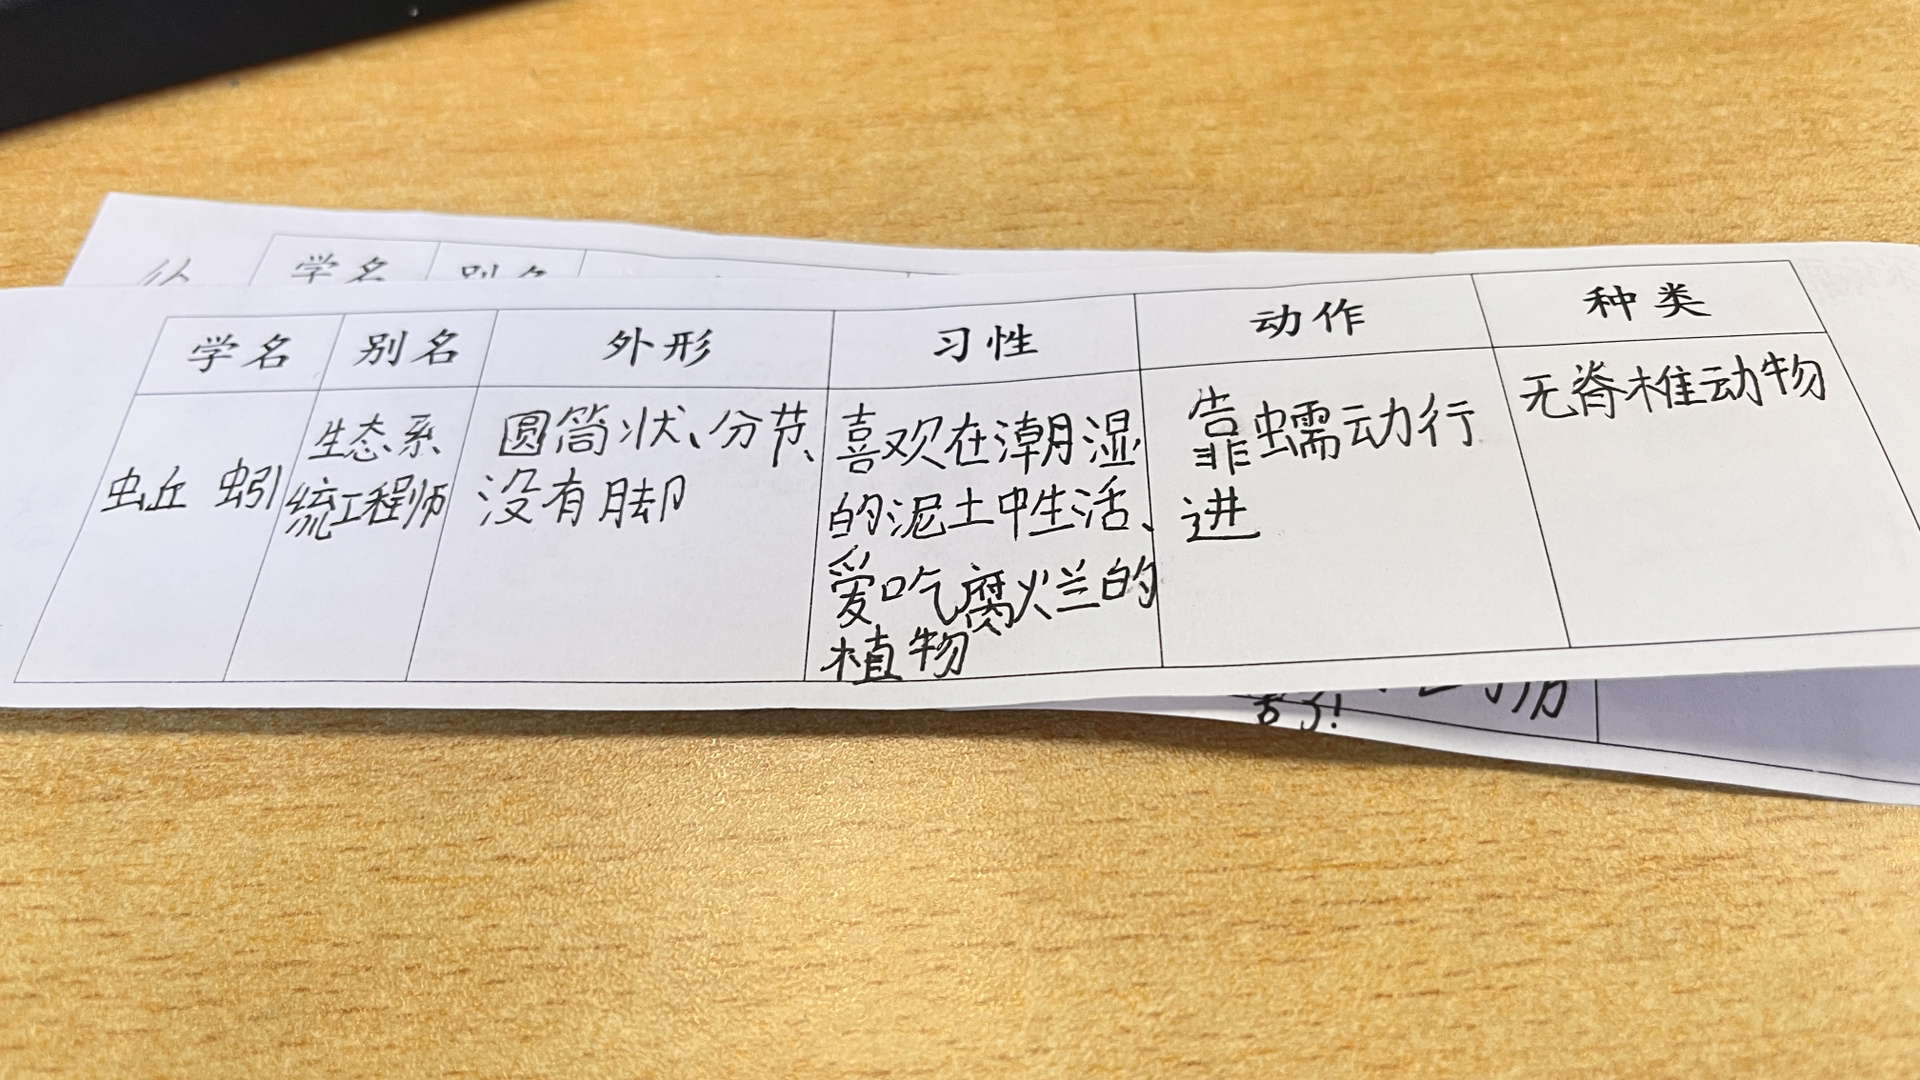 学名 别名
学名 别名 外形 习性 动作 种类
蚯蚓
生态系
统工程师
圆筒状、分节、
没有脚
喜欢在潮湿
的泥土中生活、
爱吃腐烂的
植物
靠蠕动行
进
无脊椎动物